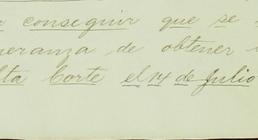 conseguir que se
eranza de obtener
lta Corte el 14 de Julio